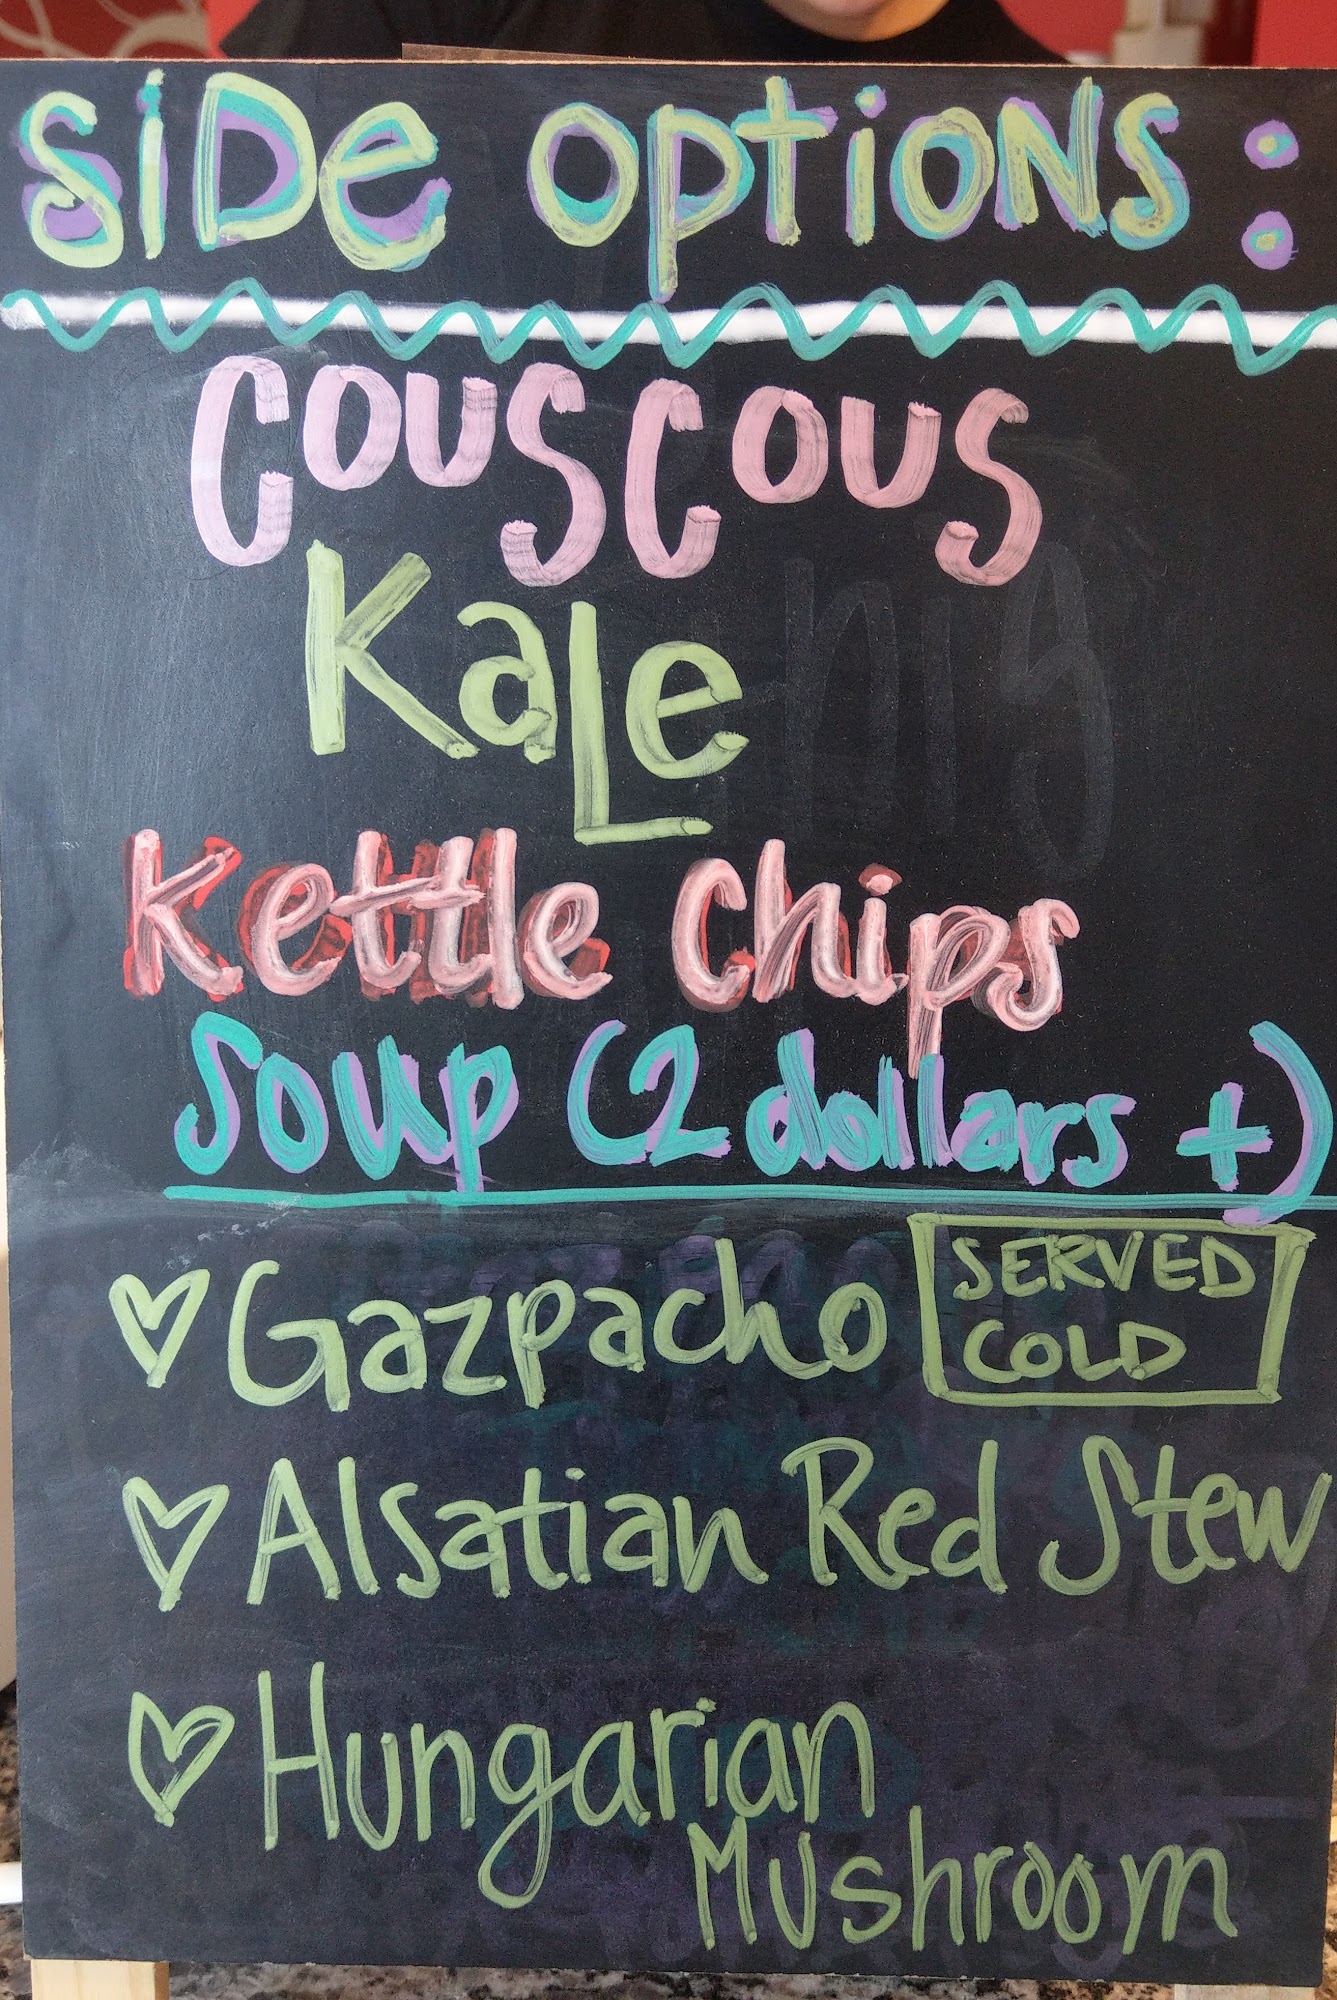 Side options:
Couscous
Kale
Kettle Chips
Soup (2 dollars +)
♡ Gazpacho SERVED COLD
♡ Alsatian Red Stew
♡ Hungarian
Mushroom